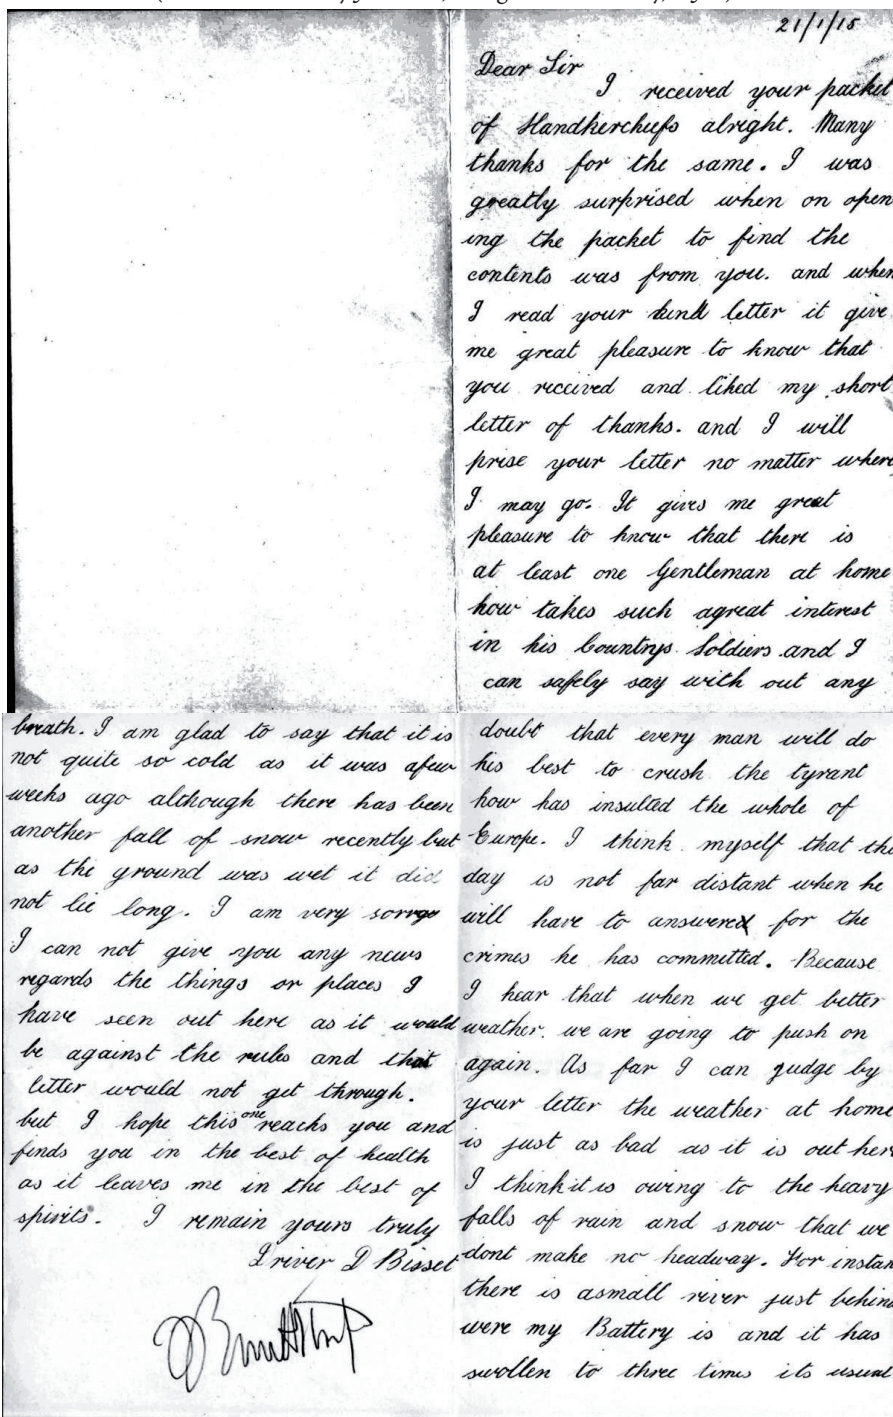 21/1/15
Dear Sir
I received your packet
of Handkerchiefs alright. Many
thanks for the same. I was
greatly surprised when on open
ing the packet to find the
contents was from you. and when
I read your kind letter it give
me great pleasure to know that
you received and liked my short
letter of thanks. and I will
prise your letter no matter where
I may go. It gives me great
pleasure to know that there is
at least one Gentleman at home
how takes such agreat interest
in his Countrys Soldiers and I
can safely say with out any
doubt that every man will do
his best to crush the tyrant
how has insulted the whole of
Europe. I think myself that the
day is not far distant when he
will have to answer for the
crimes he has committed. Because
I hear that when we get better
weather. we are going to push on
again. As far I can judge by
your letter the weather at home
is just as bad as it is out here
I think it is owing to the heavy
falls of rain and snow that we
dont make no headway. For instan
there is asmall river just behind
were my Battery is and it has
swollen to three times its usual
breath. I am glad to say that it is
not quite so cold as it was afew
weeks ago although there has been
another fall of snow recently but
as the ground was wet it did
not lie long. I am very sorry
I can not give you any news
regards the things or places I
have seen out here as it would
be against the rules and that
letter would not get through.
but I hope this one reachs you and
finds you in the best of health
as it leaves me in the best of
spirits. I remain yours truly
Driver D Bisset